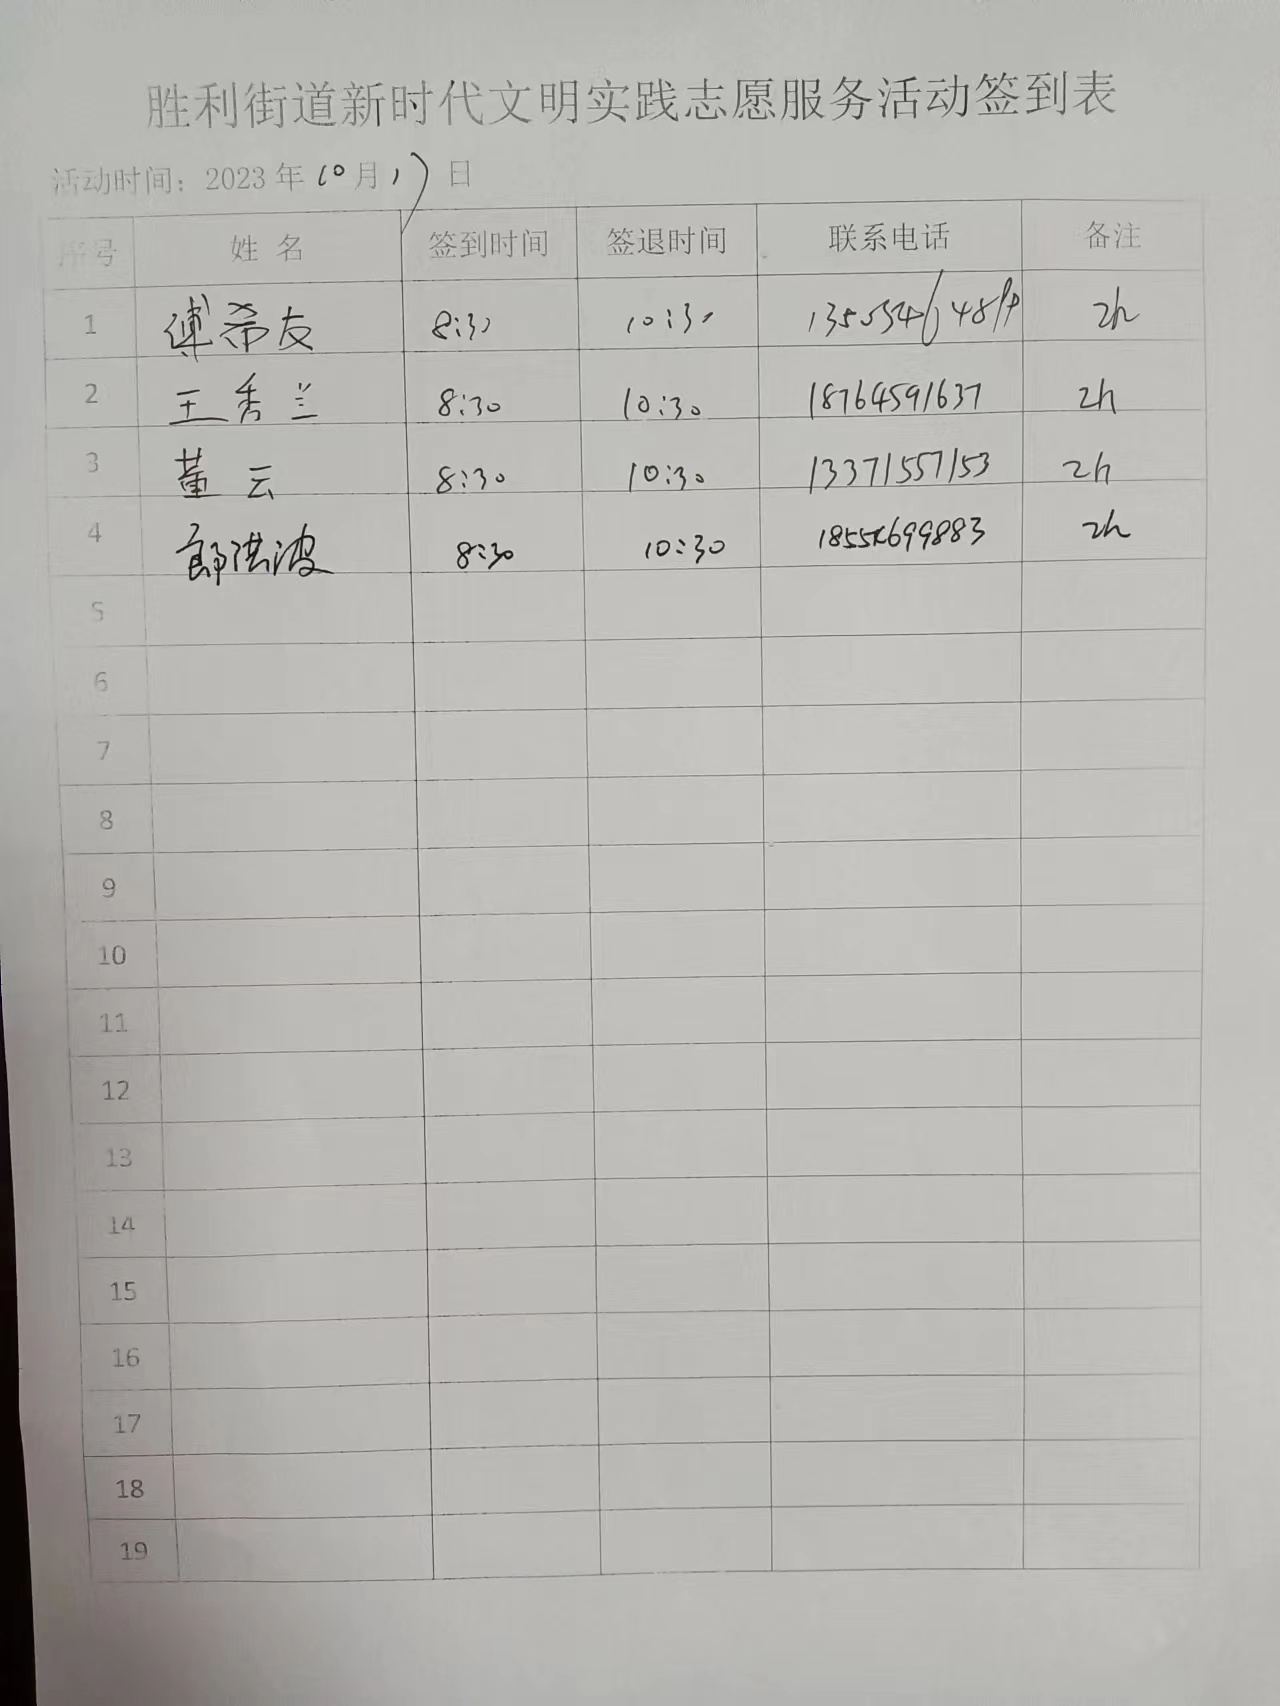 胜利街道新时代文明实践志愿服务活动签到表
活动时间：2023年10月17日
序号 姓名 签到时间 签退时间 联系电话 备注
1 傅希友 8:30 10:30 2h
2 王秀兰 8:30 10:30 18764591637 2h
3 董云 8:30 10:30 13371557153 2h
4 郎洪波 8:30 10:30 2h
5
6
7
8
9
10
11
12
13
14
15
16
17
18
19